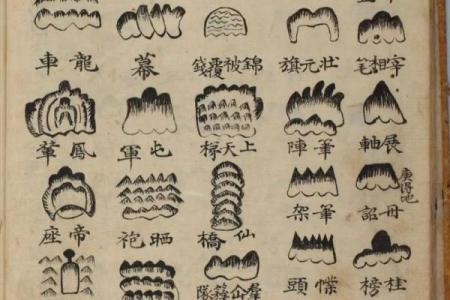 宰相笔
壯元旗
錦被覆錢
幕
龍車
展軸
筆陣
上天梯
屯軍
鳳輦
冊詔
筆架
仙橋
晒袍
帝座
桂榜
幞頭